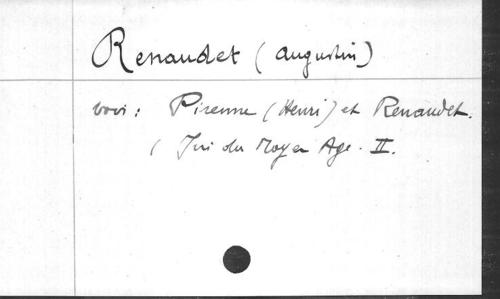 Renaudet (Augustin)
voir : Pirenne (Henri) et Renaudet.
( Fin du Moyen Age. II.